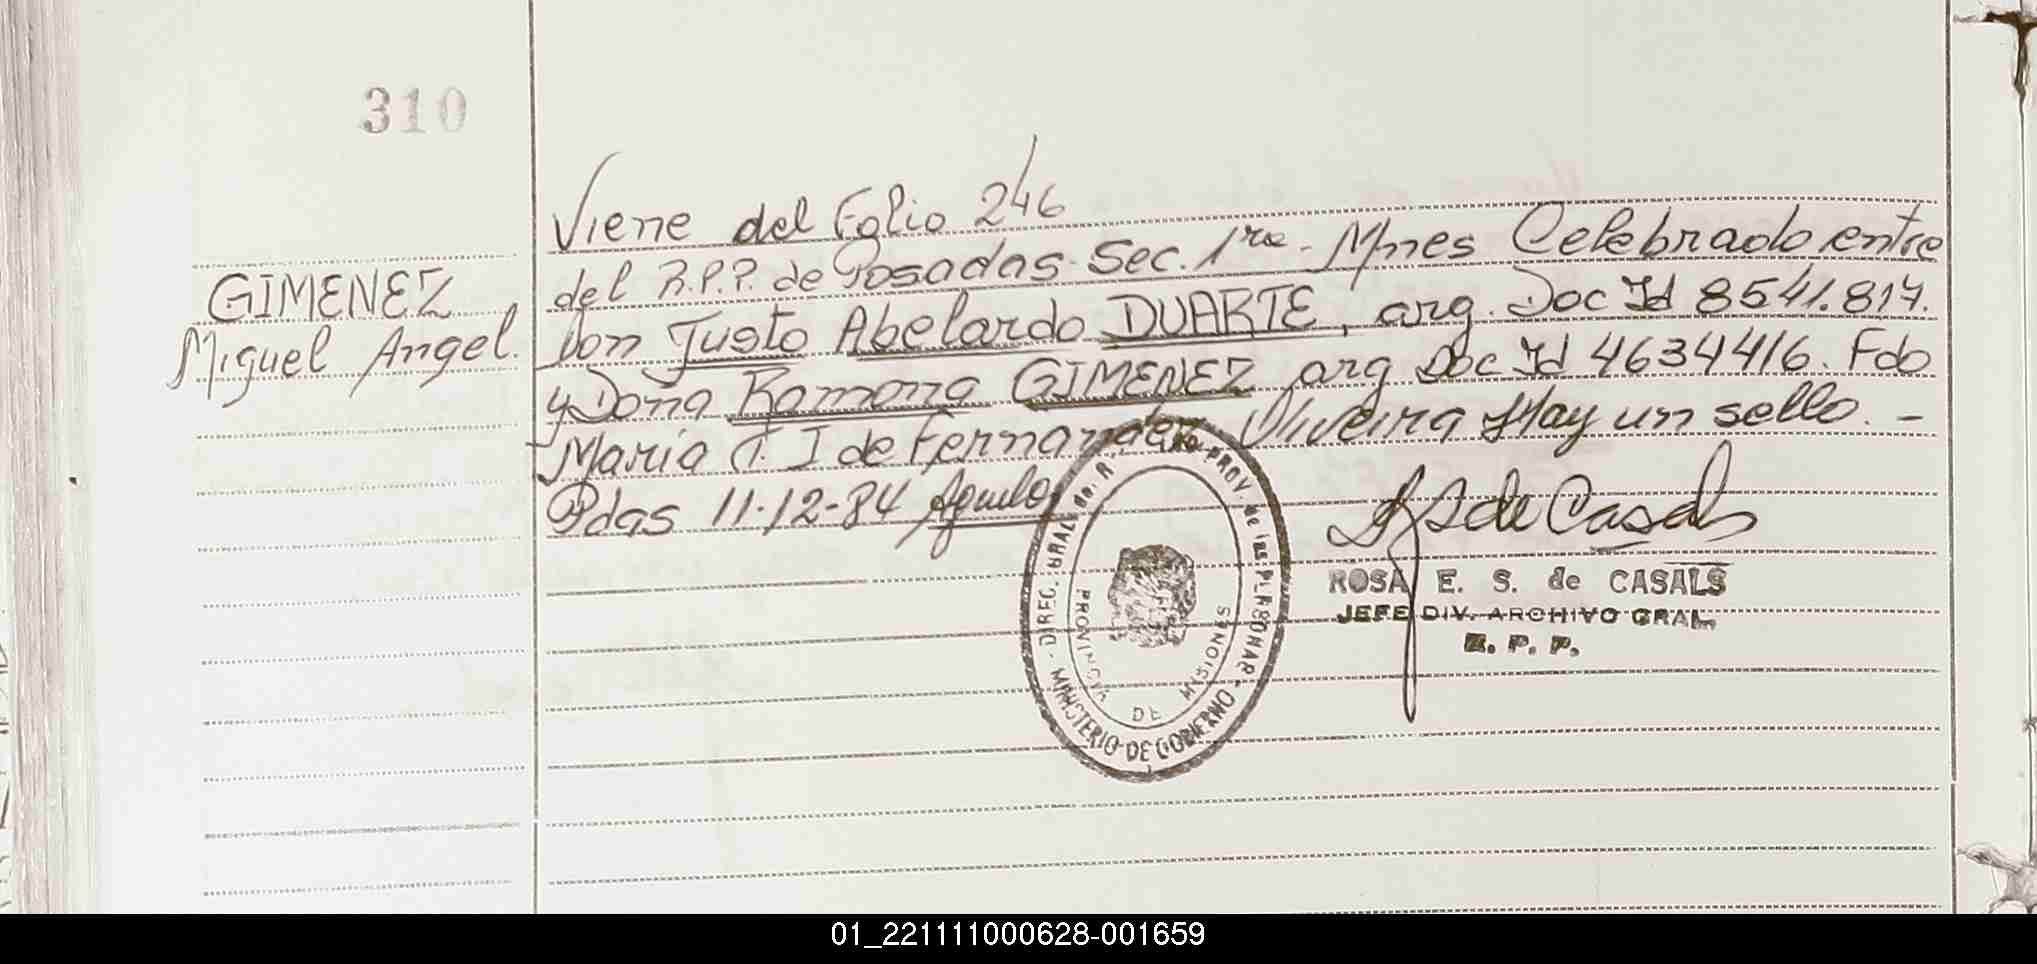 310
Viene del Folio 246
GIMENEZ
Miguel Angel.
del R.P.P. de Posadas Sec. 1ra - Mnes Celebrado entre
Don Justo Abelardo DUARTE, arg. Doc Id 8541.817.
y Doña Ramona GIMENEZ arg Doc Id 4634416. Fdo
Maria T. I de Fernandez Oliveira Hay un sello. -
Pdas 11-12-84
S de Casals
ROSA E. S. de CASALS
JEFE DIV. ARCHIVO GRAL.
R. P. P.
DIREC. GRAL. PROV. de las PERSONAS
MINISTERIO DE GOBIERNO
PROVINCIA DE MISIONES
01_221111000628-001659